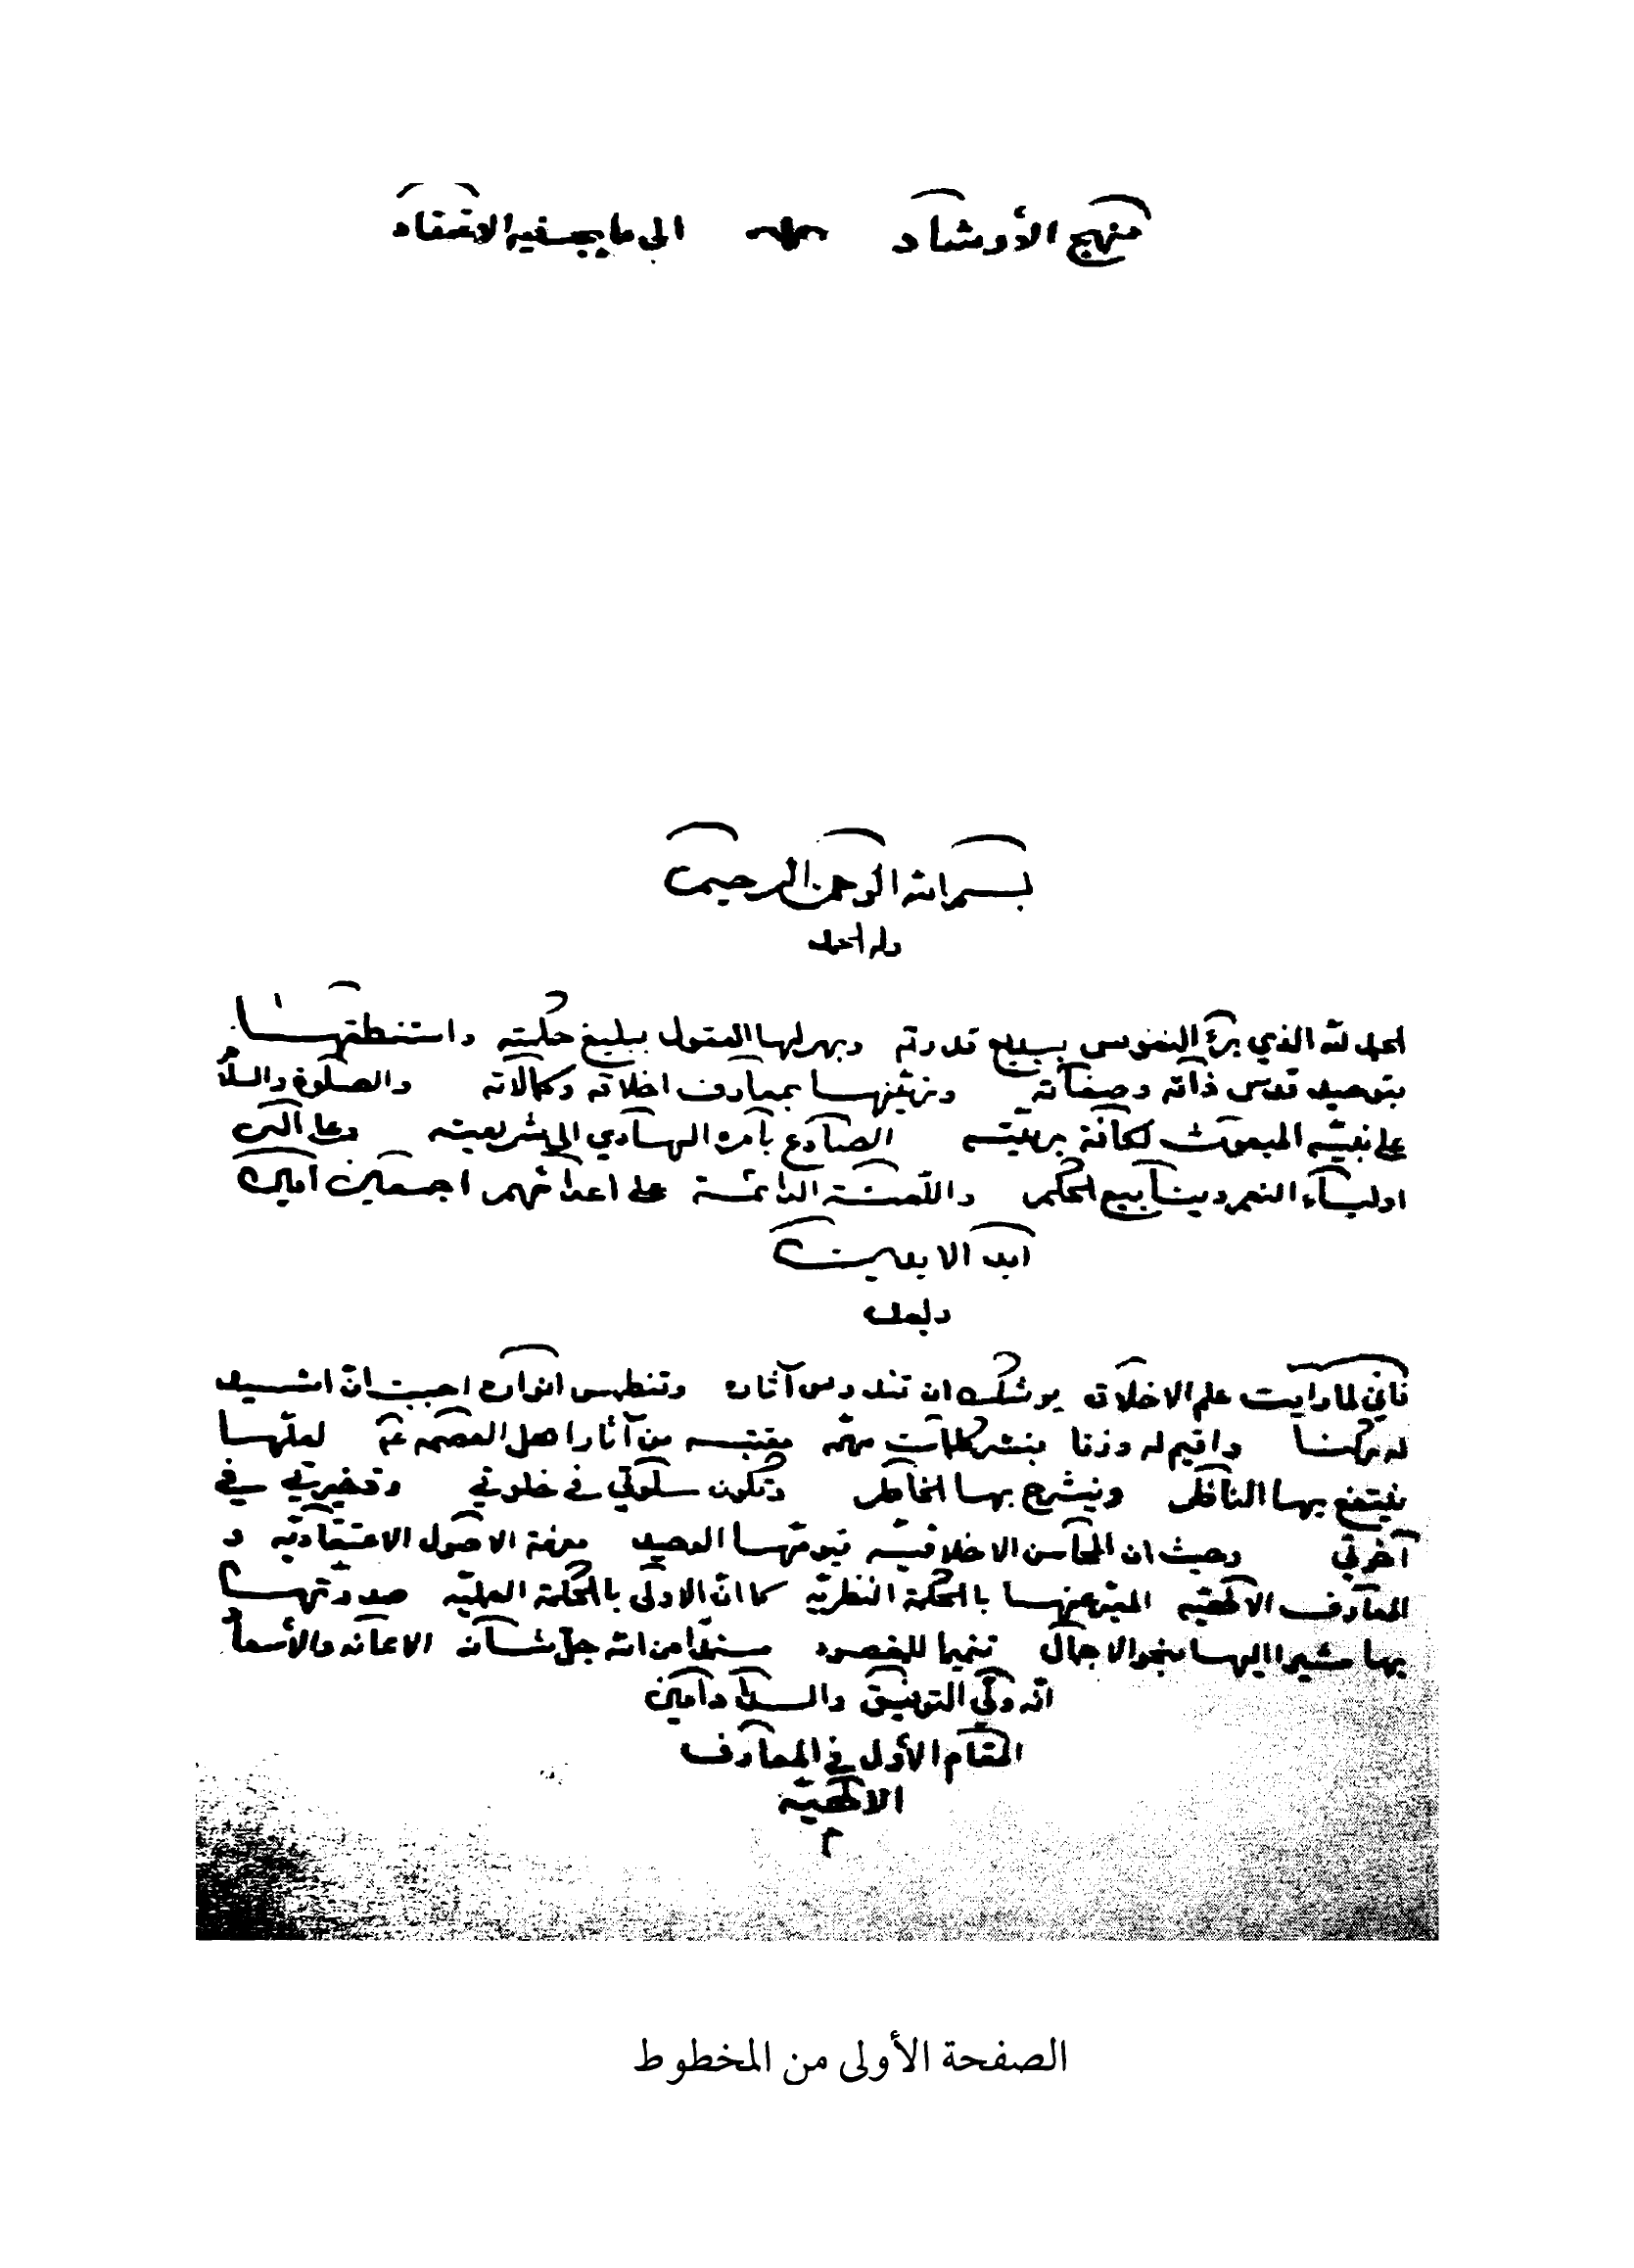 منهج الأرشاد الى ما يجب فيه الاعتقاد
بسم الله الرحمن الرحيم
وله الحمد
الحمد لله الذي برئ النفوس ببديع قدرته وبهر لها العقول ببليغ حكمته واستنطقها
بتوحيد قدس ذاته وصفاته وزيّنها بمعارف اخلاقه وكمالاته والصلوة والسلام
على نبيّه المبعوث لكافة بريّته الصادع بأمره الهادي الى شريعته وعلى آله
اولياء النعم وينابيع الحكم واللّعنة الدائمة على اعدائهم اجمعين آمين
ابد الابدين
وبعد
فاني لما رايت علم الاخلاق يوشك ان تندرس آثاره وتنطمس انواره احببت انّ اشيد
له ركنا واقيم له وزنا بنشر كلمات مهمّه مقتبسه من آثار اهل العصمه عم لعلّها
ينتفع بها الناظر وينشرح بها الخاطر وتكون سلوتي في خلوتي وذخيرتي في
آخرتي وحيث ان المحاسن الاخلاقيّه قيومّها الوحيد معرفة الاصول الاعتقاديّه و
المعارف الالهيّه المعبّر عنها بالحكمة النظريّه كما انّ الاولى بالحكمة العمليّه صدّرتها
بها مشيرا اليها بنحو الاجمال تتميما للمقصود مستمدّا من الله جلّ شأنه الاعانه والأسعاد
انّه وليّ التوفيق والسداد آمين
المقام الأول في المعارف
الالهيّه
٢
الصفحة الأولى من المخطوط